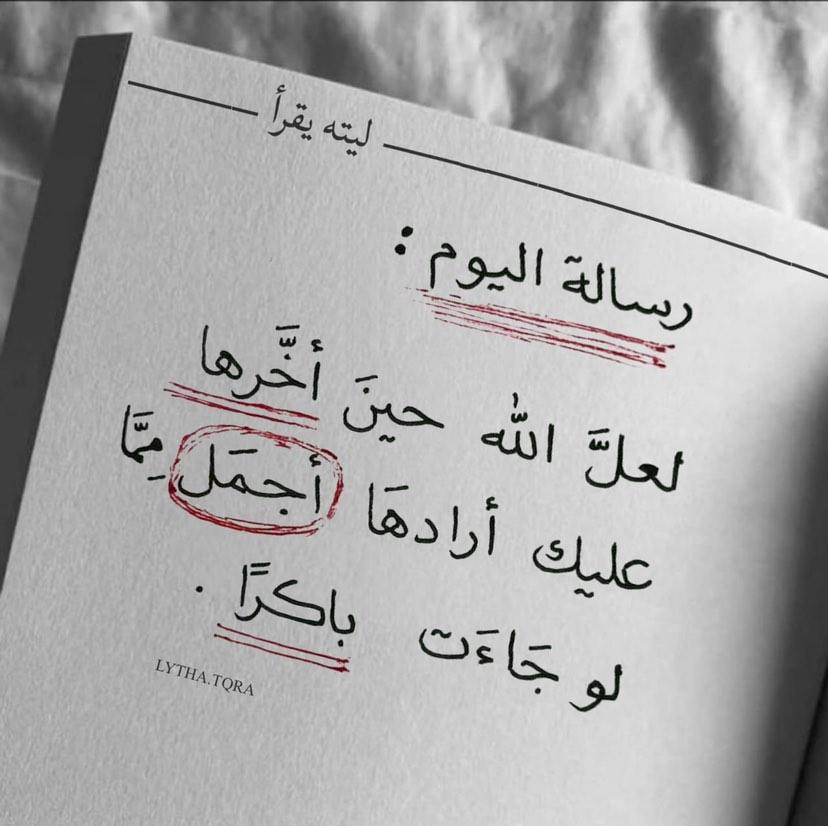 ليته يقرأ
رسالة اليوم :
لعلَّ الله حينَ أخَّرها
عليك أرادهَا أجمَل مِمَّا
لو جَاءَت باكرًا .
LYTHA.TQRA